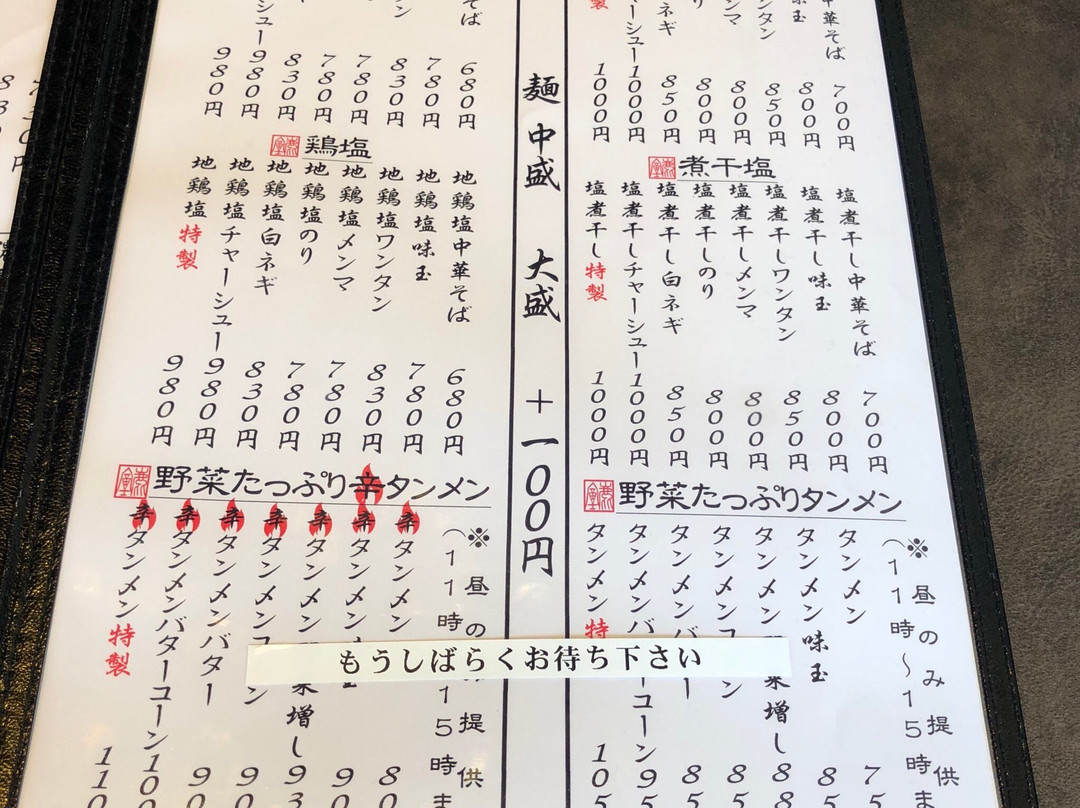 中華そば 700円
味玉 800円
ンタン 850円
ンマ 800円
800円
ネギ 850円
ーシュー 1000円
製 1000円
煮干塩
塩煮干し中華そば 700円
塩煮干し味玉 800円
塩煮干しワンタン 850円
塩煮干しメンマ 800円
塩煮干しのり 800円
塩煮干し白ネギ 850円
塩煮干しチャーシュー 1000円
塩煮干し特製 1000円
野菜たっぷりタンメン
※昼のみ提供
(11時～15時ま
タンメン
タンメン味玉
タンメン 菜増し
タンメンコ ン
タンメンバ ー
タンメンバ コーン
タンメン特
麺 中盛 大盛 ＋一〇〇円
そば 680円
780円
830円
780円
780円
830円
シュー 980円
980円
鶏塩
地鶏塩中華そば 680円
地鶏塩味玉 780円
地鶏塩ワンタン 830円
地鶏塩メンマ 780円
地鶏塩のり 780円
地鶏塩白ネギ 830円
地鶏塩チャーシュー 980円
地鶏塩特製 980円
野菜たっぷり辛タンメン
※昼のみ提供
(11時 15時ま
辛タンメン
辛タンメン 玉
辛タンメン 菜増し
辛タンメンコ ン
辛タンメンバター
辛タンメンバターコーン
辛タンメン特製
もうしばらくお待ち下さい